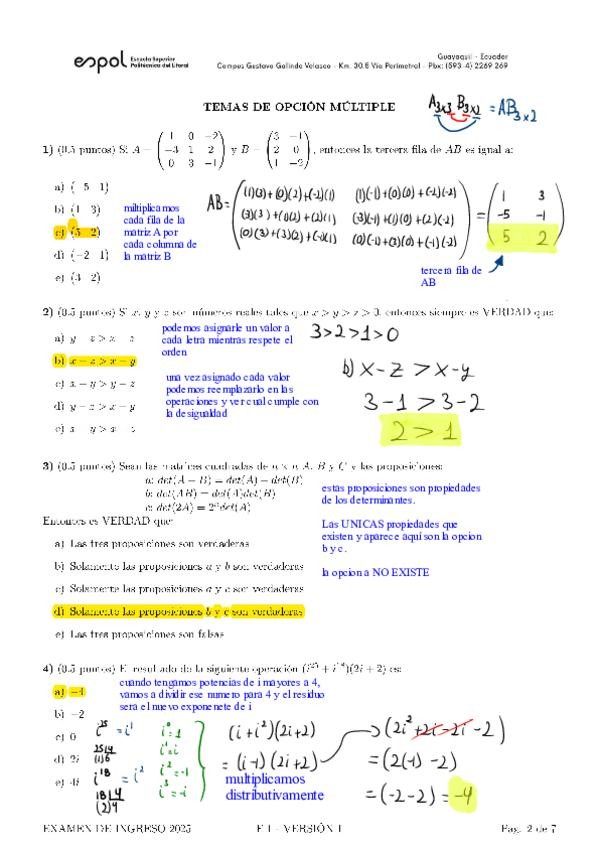 espol Escuela Superior Politécnica del Litoral
Guayaquil - Ecuador
Campus Gustavo Galindo Velasco - Km. 30.5 Vía Perimetral - Pbx: (593-4) 2269 269
TEMAS DE OPCIÓN MÚLTIPLE
A3x3 B3x2 = AB3x2
1) (0.5 puntos) Si A = (1 0 −2 / −3 1 2 / 0 3 −1) y B = (3 −1 / 2 0 / 1 −2), entonces la tercera fila de AB es igual a:
b) (1 3)
c) (5 2)
d) (−2 1)
e) (3 2)
multiplicamos
cada fila de la
matriz A por
cada columna de
la matriz B
AB=
(1)(3)+(0)(2)+(-2)(1) (1)(-1)+(0)(0)+(-2)(-2)
= (1 3 / -5 -1 / 5 2)
tercera fila de
AB
2) (0.5 puntos) Si x, y y z son números reales tales que x > y > z > 0, entonces siempre es VERDAD que:
b) x − z > x − y
c) x − y > y − z
d) y − z > x − y
podemos asignarle un valor a
cada letra mientras respete el
orden
una vez asignado cada valor
podemos reemplazarlo en las
operaciones y ver cual cumple con
la desigualdad
3>2>1>0
b) x-z > x-y
3-1 > 3-2
2 > 1
3) (0.5 puntos) Sean las matrices cuadradas de n × n A, B y C y las proposiciones:
b: det(AB) = det(A)det(B)
c: det(2A) = 2ⁿdet(A)
Entonces es VERDAD que:
a) Las tres proposiciones son verdaderas
b) Solamente las proposiciones a y b son verdaderas
c) Solamente las proposiciones a y c son verdaderas
d) Solamente las proposiciones b y c son verdaderas
e) Las tres proposiciones son falsas
estas proposiciones son propiedades
de los determinantes.
Las UNICAS propiedades que
existen y aparece aqui son la opcion
b y c.
la opcion a NO EXISTE
4) (0.5 puntos) El resultado de la siguiente operación (2i + 2) es:
a) −4
b) −2
c) 0
d) 2i
e) 4i
cuando tengamos potencias de i mayores a 4,
vamos a dividir ese numero para 4 y el residuo
será el nuevo exponente de i
i²⁵ = i¹
25|4
(1) 6
i¹⁸ = i²
18|4
(2) 4
i⁰=1
i¹=i
i²=-1
i³=-i
(i+i²)(2i+2)
=(i-1)(2i+2)
multiplicamos
distributivamente
(2i²+2i-2i-2)
=(2(-1)-2)
=(-2-2)=-4
EXAMEN DE INGRESO 2025
F1 - VERSIÓN 1
Pág. 2 de 7